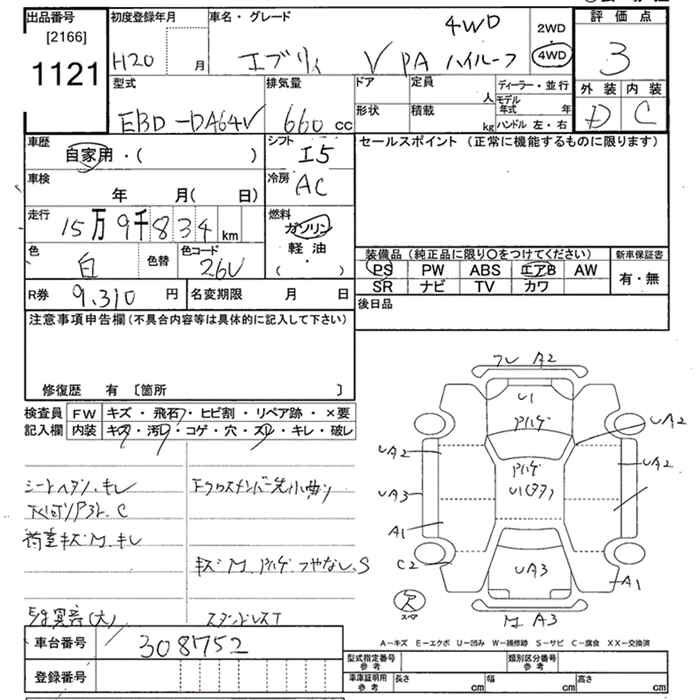 出品番号 初度登録年月 車名・グレード 4WD 2WD 評価点
[2166] H20 月 エブリィ V PA ハイルーフ 4WD 3
1121
型式 排気量 ドア 定員 ディーラー・並行 外装 内装
形状 積載 人 モデル年式 年 D C
EBD-DA64V 660 cc kg ハンドル 左・右
車歴 シフト セールスポイント (正常に機能するものに限ります)
自家用・( ) I5
車検 冷房
年 月( 日) AC
走行 燃料
15万9千834 km ガソリン
軽油
( ・ )
色 色替 色コード 装備品(純正品に限り○をつけてください) 新車保証書
白 26U PS PW ABS エアB AW 有・無
SR ナビ TV カワ
R券 9,310 円 名変期限 月 日 後日品
注意事項申告欄(不具合内容等は具体的に記入して下さい)
修復歴 有 〔箇所 〕
検査員 FW キズ・飛石・ヒビ割・リペア跡・×要
記入欄 内装 キズ・汚・コゲ・穴・スレ・キレ・破レ
A2
U1
UA2
UA2 UA2
UA3
A1
C2 UA3 A1
スペア
M A3
キレ
C
キズ M キレ
キズ M S
(大)
A－キズ E－エクボ U－凹み W－補修跡 S－サビ C－腐食 XX－交換済
車台番号 308752
登録番号
型式指定番号 参考 類別区分番号 参考
車庫証明用 参考 長さ cm 幅 cm 高さ cm